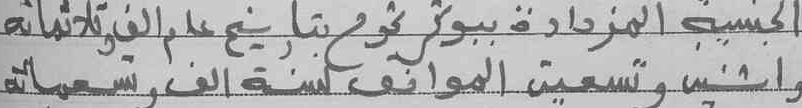 الجنسية المزدادة ببوكر نحوم بتاريخ عام الف وثلاثمائة
واثنين وتسعين الموافق لسنة الف وتسعمائة